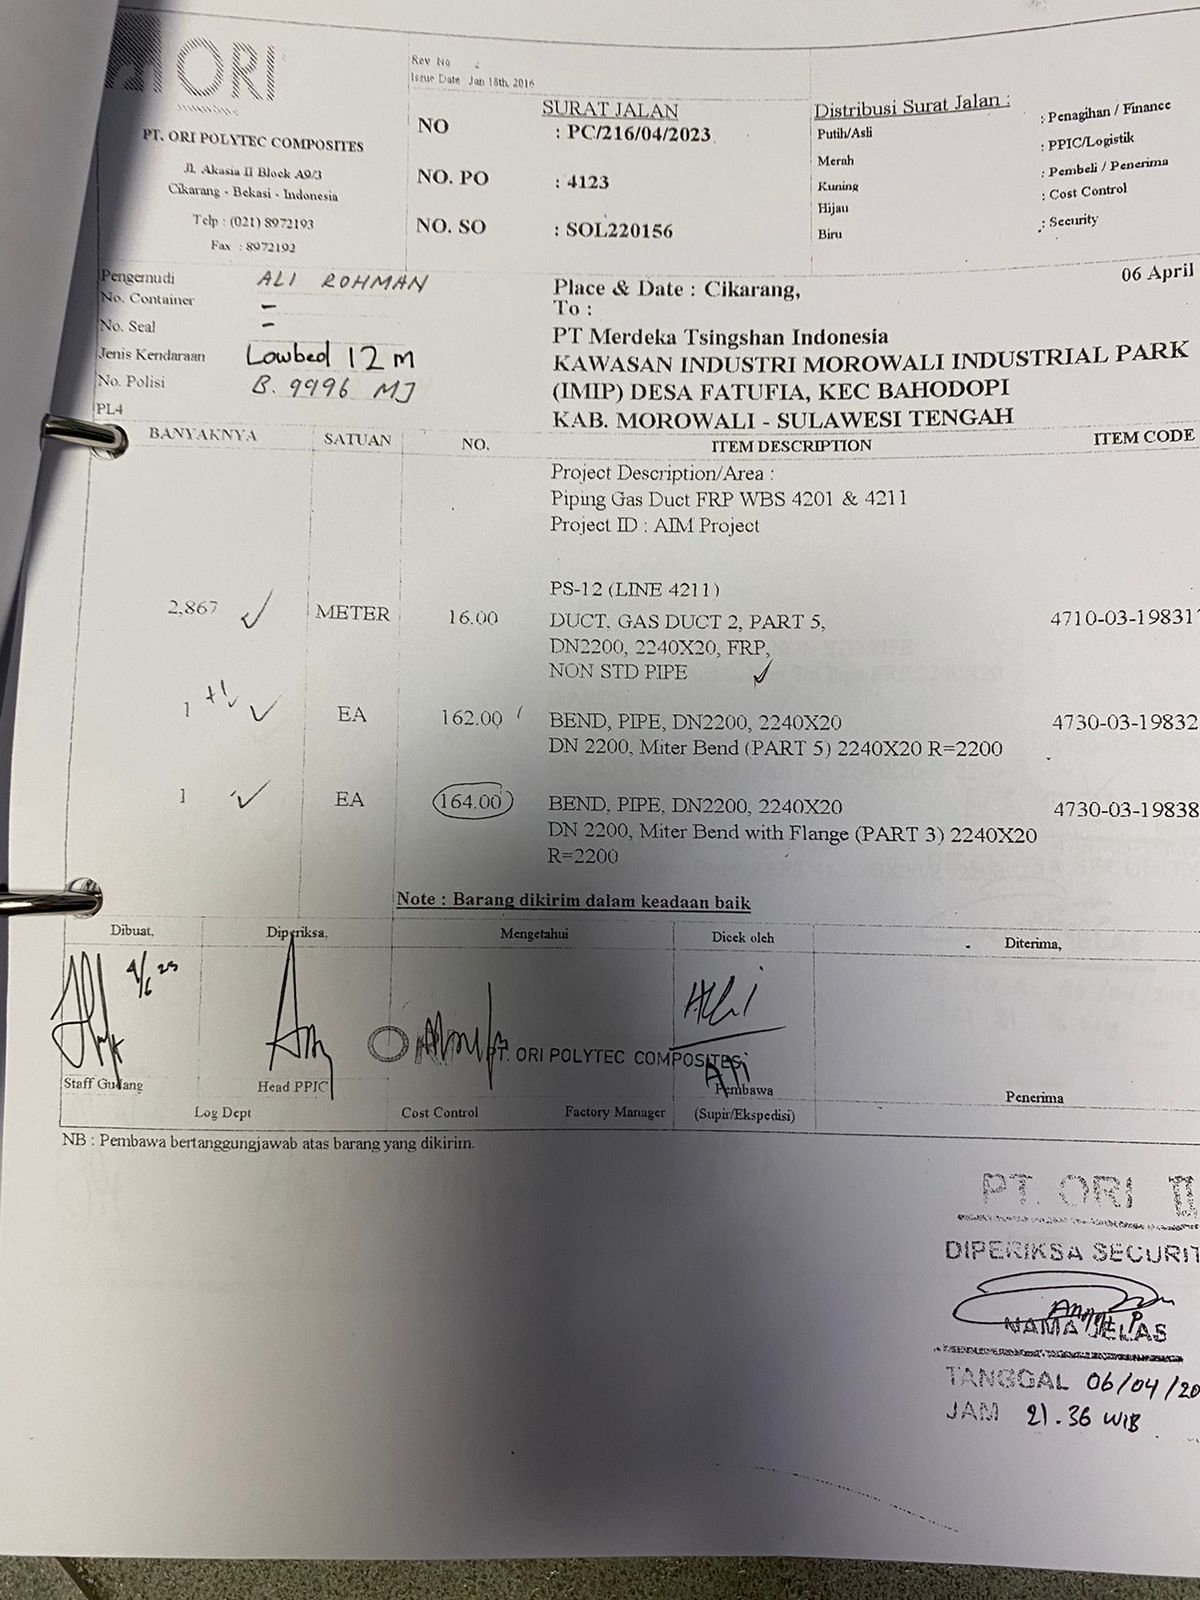 ORI
PT. ORI POLYTEC COMPOSITES
Jl. Akasia II Block A9/3
Cikarang - Bekasi - Indonesia
Telp : (021) 8972193
Fax : 8972192
Rev No
Issue Date : Jan 18th, 2016
SURAT JALAN
NO : PC/216/04/2023
NO. PO : 4123
NO. SO : SOL220156
Distribusi Surat Jalan :
Putih/Asli : Penagihan / Finance
Merah : PPIC/Logistik
Kuning : Pembeli / Penerima
Hijau : Cost Control
Biru : Security
Pengemudi ALI ROHMAN
No. Container -
No. Seal -
Jenis Kendaraan Lowbed 12 M
No. Polisi B. 9996 MJ
PL4
Place & Date : Cikarang, 06 April
To :
PT Merdeka Tsingshan Indonesia
KAWASAN INDUSTRI MOROWALI INDUSTRIAL PARK
(IMIP) DESA FATUFIA, KEC BAHODOPI
KAB. MOROWALI - SULAWESI TENGAH
BANYAKNYA SATUAN NO. ITEM DESCRIPTION ITEM CODE
Project Description/Area :
Piping Gas Duct FRP WBS 4201 & 4211
Project ID : AIM Project
PS-12 (LINE 4211)
2,867 METER 16.00 DUCT, GAS DUCT 2, PART 5, 4710-03-19831
DN2200, 2240X20, FRP,
NON STD PIPE
1 +1 EA 162.00 BEND, PIPE, DN2200, 2240X20 4730-03-19832
DN 2200, Miter Bend (PART 5) 2240X20 R=2200
1 EA 164.00 BEND, PIPE, DN2200, 2240X20 4730-03-19838
DN 2200, Miter Bend with Flange (PART 3) 2240X20
R=2200
Note : Barang dikirim dalam keadaan baik
Dibuat, Diperiksa, Mengetahui Dicek oleh Diterima,
PT. ORI POLYTEC COMPOSITES
Staff Gudang Head PPIC Pembawa Penerima
Log Dept Cost Control Factory Manager (Supir/Ekspedisi)
NB : Pembawa bertanggungjawab atas barang yang dikirim.
PT. ORI
DIPERIKSA SECURIT
NAMA JELAS
TANGGAL 06/04/20
JAM 21.36 WIB